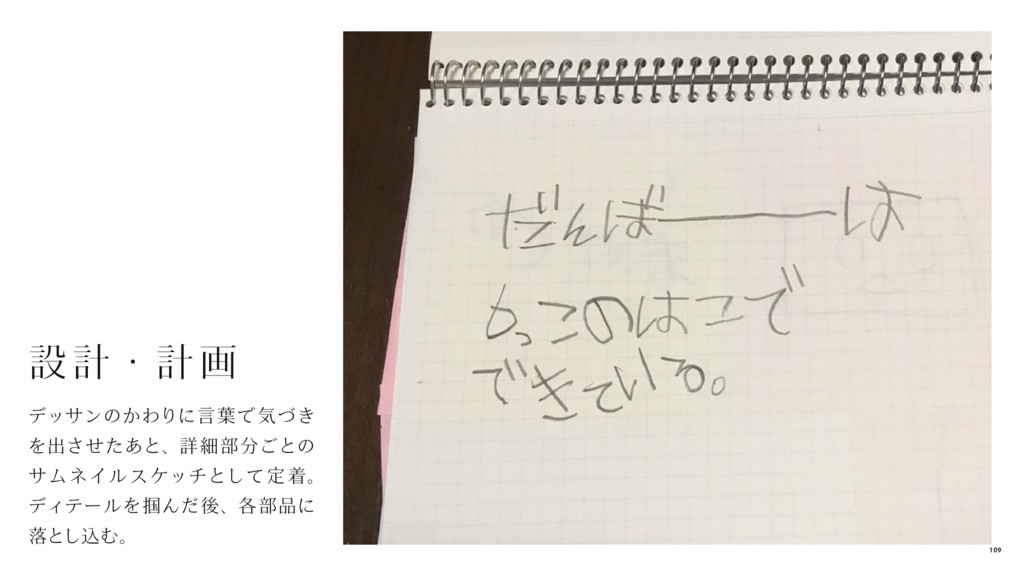 設計・計画
デッサンのかわりに言葉で気づき
を出させたあと、詳細部分ごとの
サムネイルスケッチとして定着。
ディテールを掴んだ後、各部品に
落とし込む。
だんばーーは
6っこのはこで
できている。
109